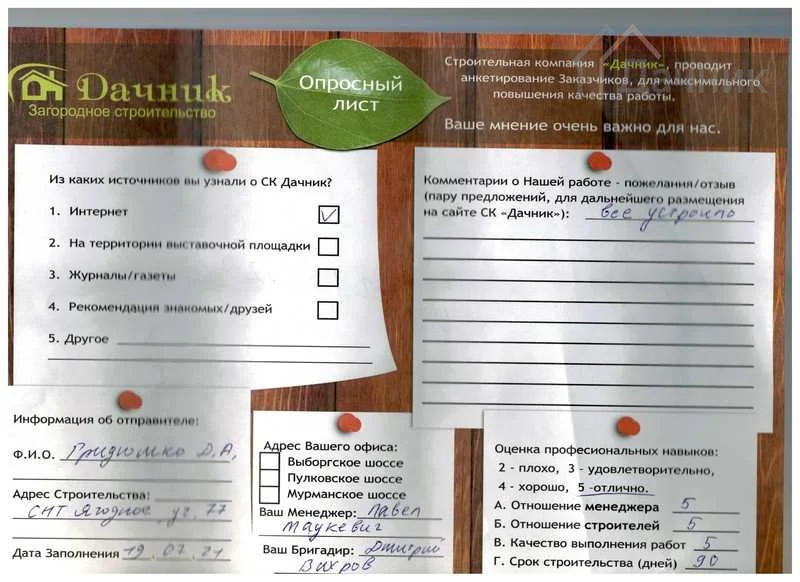 Дачник
Загородное строительство
Опросный
лист
Строительная компания «Дачник», проводит
анкетирование Заказчиков, для максимального
повышения качества работы.
Ваше мнение очень важно для нас.
Из каких источников вы узнали о СК Дачник?
1. Интернет
2. На территории выставочной площадки
3. Журналы/газеты
4. Рекомендация знакомых/друзей
5. Другое
Комментарии о Нашей работе - пожелания/отзыв
(пару предложений, для дальнейшего размещения
на сайте СК «Дачник»): все устроило
Информация об отправителе:
Ф.И.О. Гридюшко Д.А,
Адрес Строительства:
СНТ Ягодное, уч. 77
Дата Заполнения 19.07.21
Адрес Вашего офиса:
Выборгское шоссе
Пулковское шоссе
Мурманское шоссе
Ваш Менеджер: Павел
Мацкевич
Ваш Бригадир: Дмитрий
Вихров
Оценка професиональных навыков:
2 - плохо, 3 - удовлетворительно,
4 - хорошо, 5 -отлично.
А. Отношение менеджера 5
Б. Отношение строителей 5
В. Качество выполнения работ 5
Г. Срок строительства (дней) 90